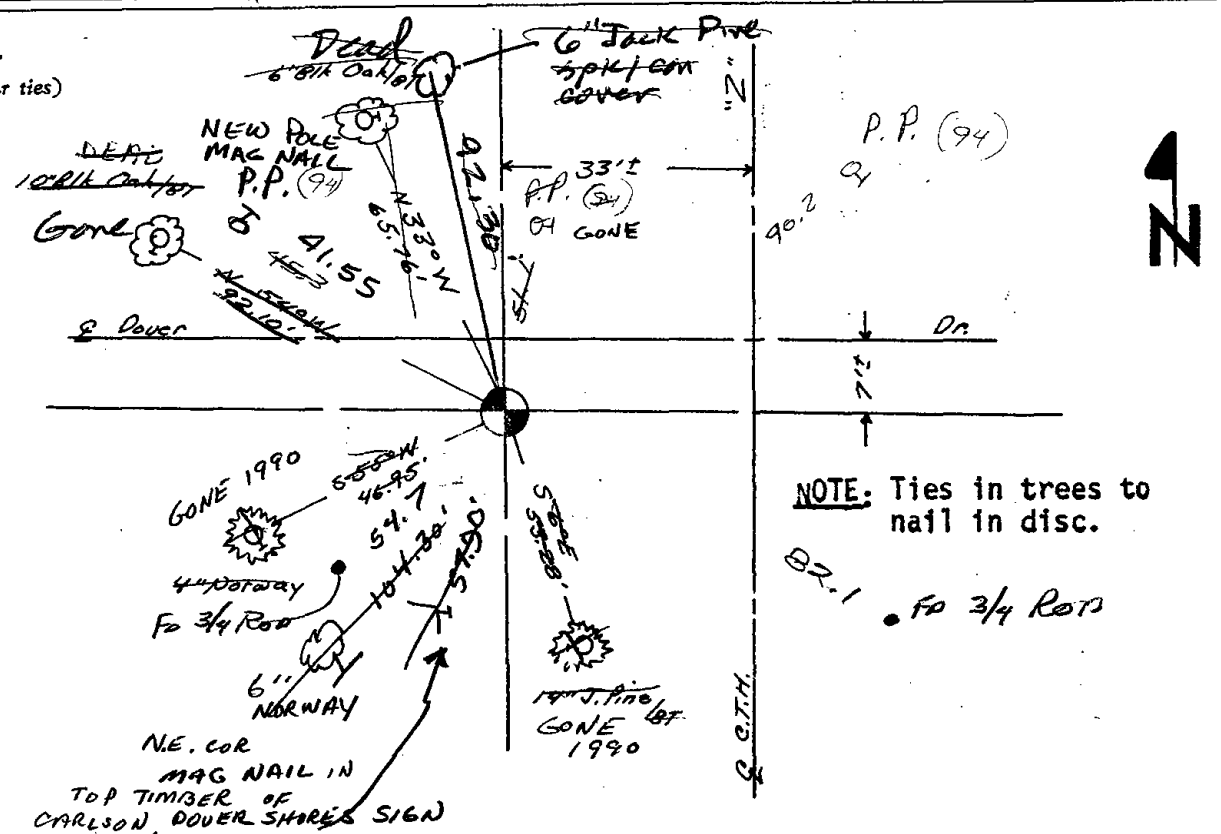 r ties)
Dead
6" Blk Oak/BT
6" Jack Pine
spk/con
cover
"Z"
P.P. (94)
90.2
NEW POLE
MAG NAIL
P.P. (94)
41.55
45.3
DEAD
10" Blk Oak/BT
Gone
N 54° W
92.10'
N 33° W
65.76'
92.30'
33'±
P.P. (94)
GONE
51.
℄ Dover
Dr.
7'±
N
GONE 1990
S 55° W
46.95'
4" Norway
54.7
Fo 3/4 Rod
104.30'
57.90'
6"
NORWAY
S 8° E
55.28'
14" J. Pine/BT
GONE
1990
NOTE: Ties in trees to
nail in disc.
82.1
Fo 3/4 Rod
℄ C.T.H.
N.E. COR
MAG NAIL IN
TOP TIMBER OF
CARLSON DOVER SHORES SIGN